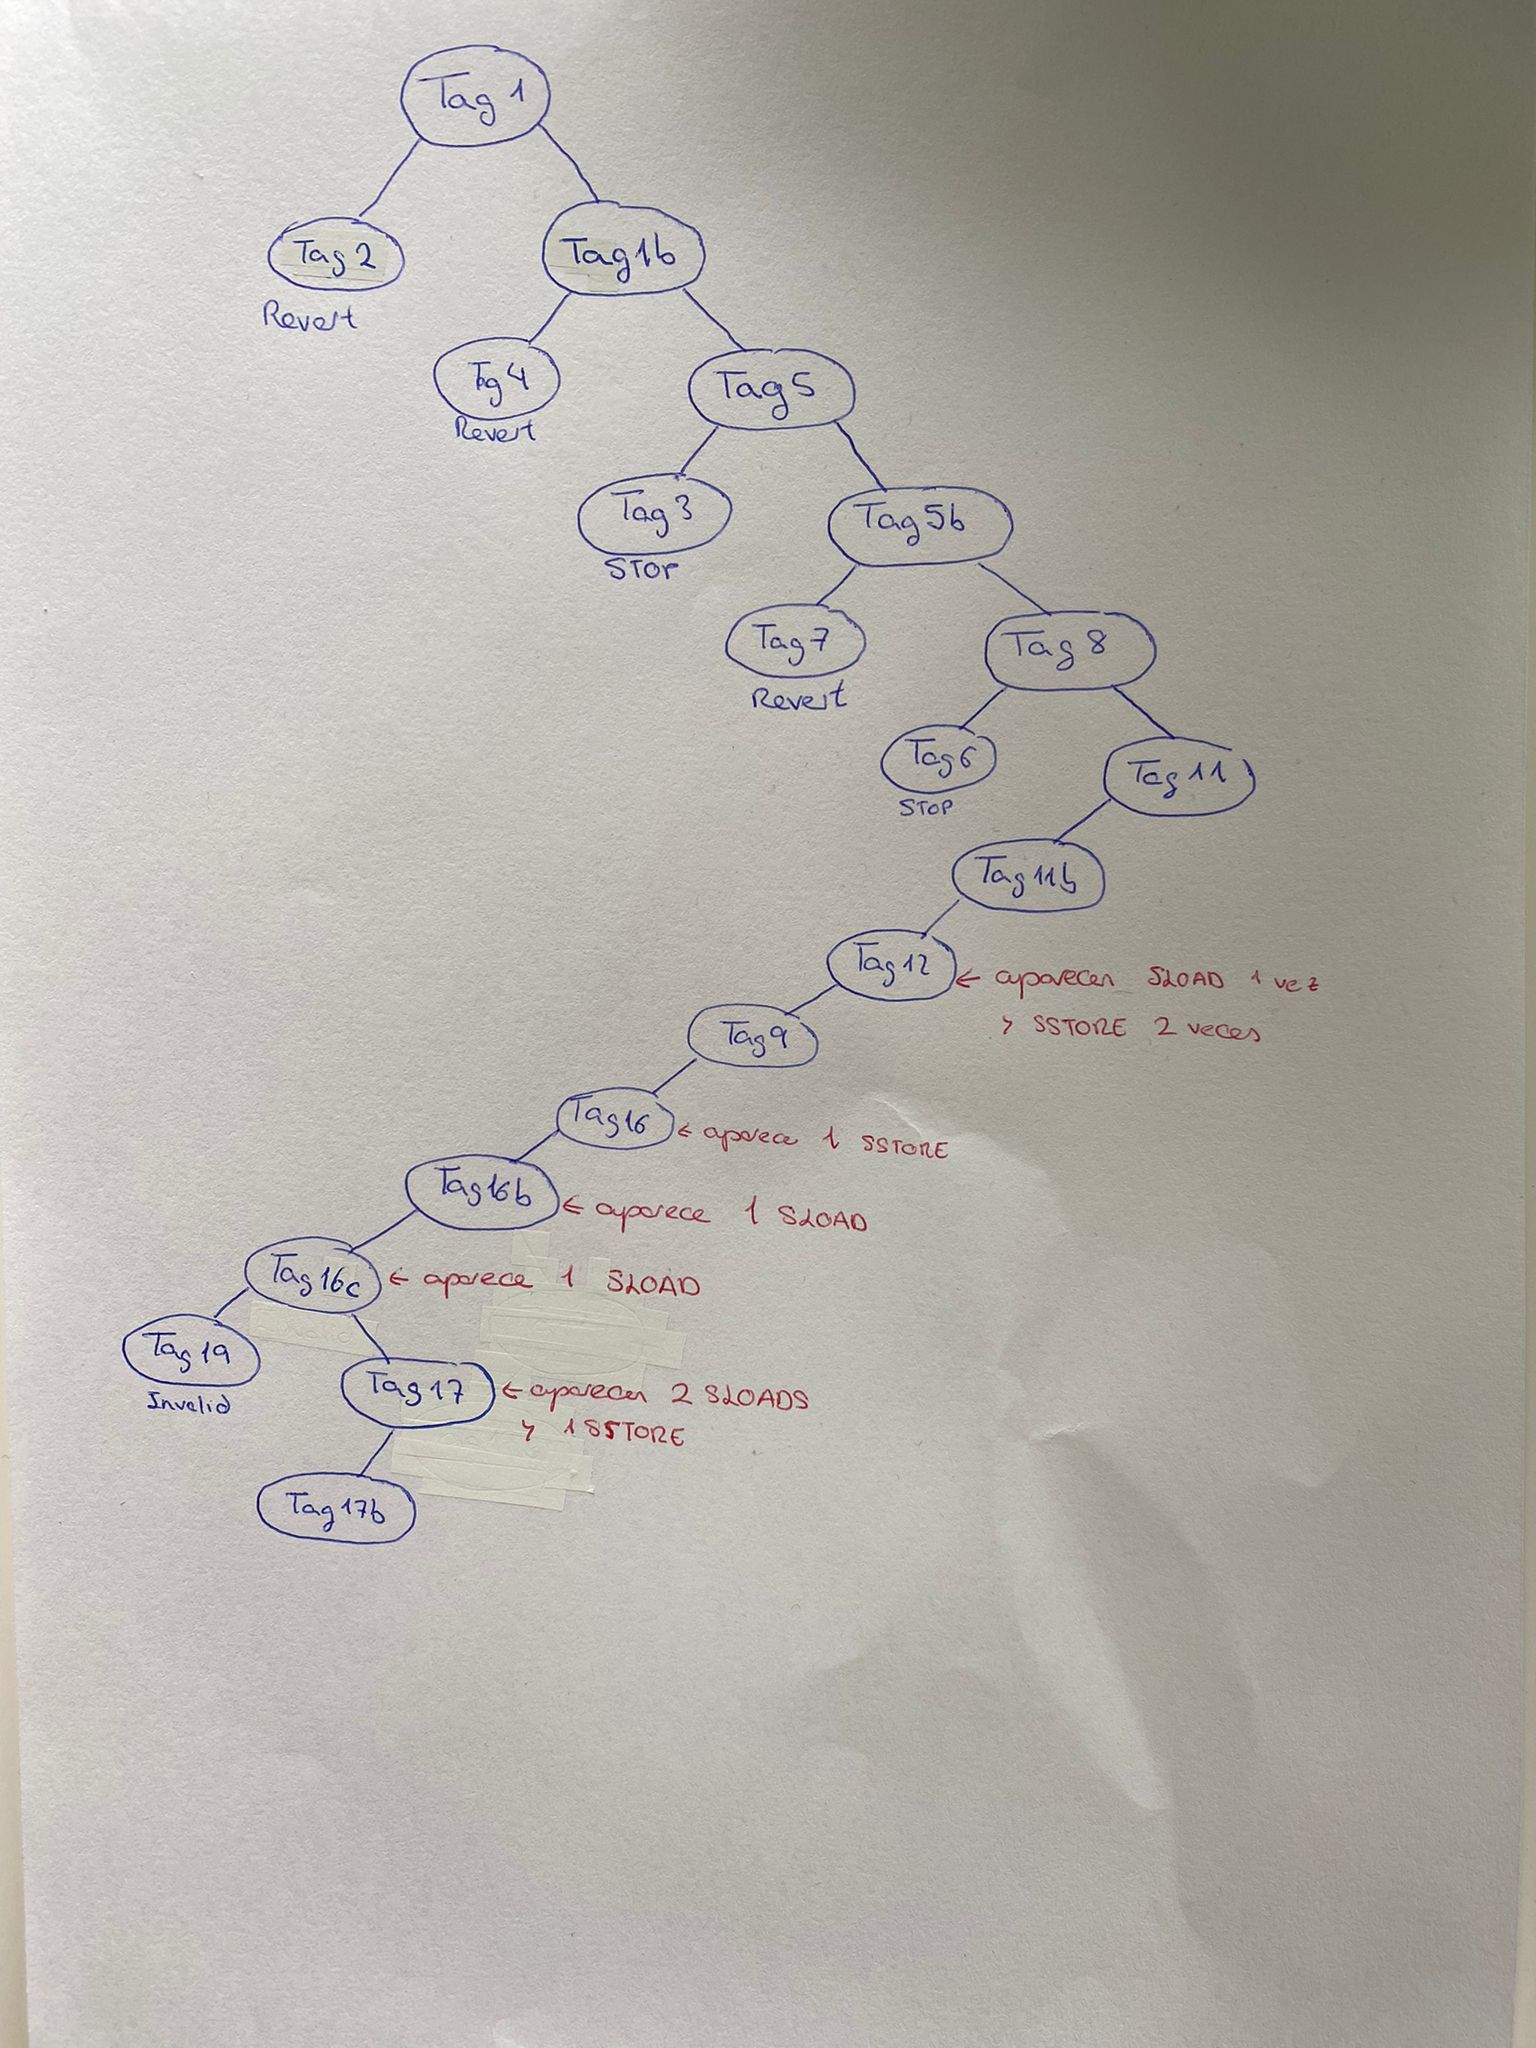 Tag 1
Tag 2
Tag 1b
Revert
Tag 4
Tag 5
Revert
Tag 3
Tag 5b
STOP
Tag 7
Tag 8
Revert
Tag 6
Tag 11
STOP
Tag 11b
Tag 12 ← aparecen SLOAD 1 vez
y SSTORE 2 veces
Tag 9
Tag 16 ← aparece 1 SSTORE
Tag 16b ← aparece 1 SLOAD
Tag 16c ← aparece 1 SLOAD
Tag 19
Invalid
Tag 17 ← aparecen 2 SLOADS
y 1 SSTORE
Tag 17b